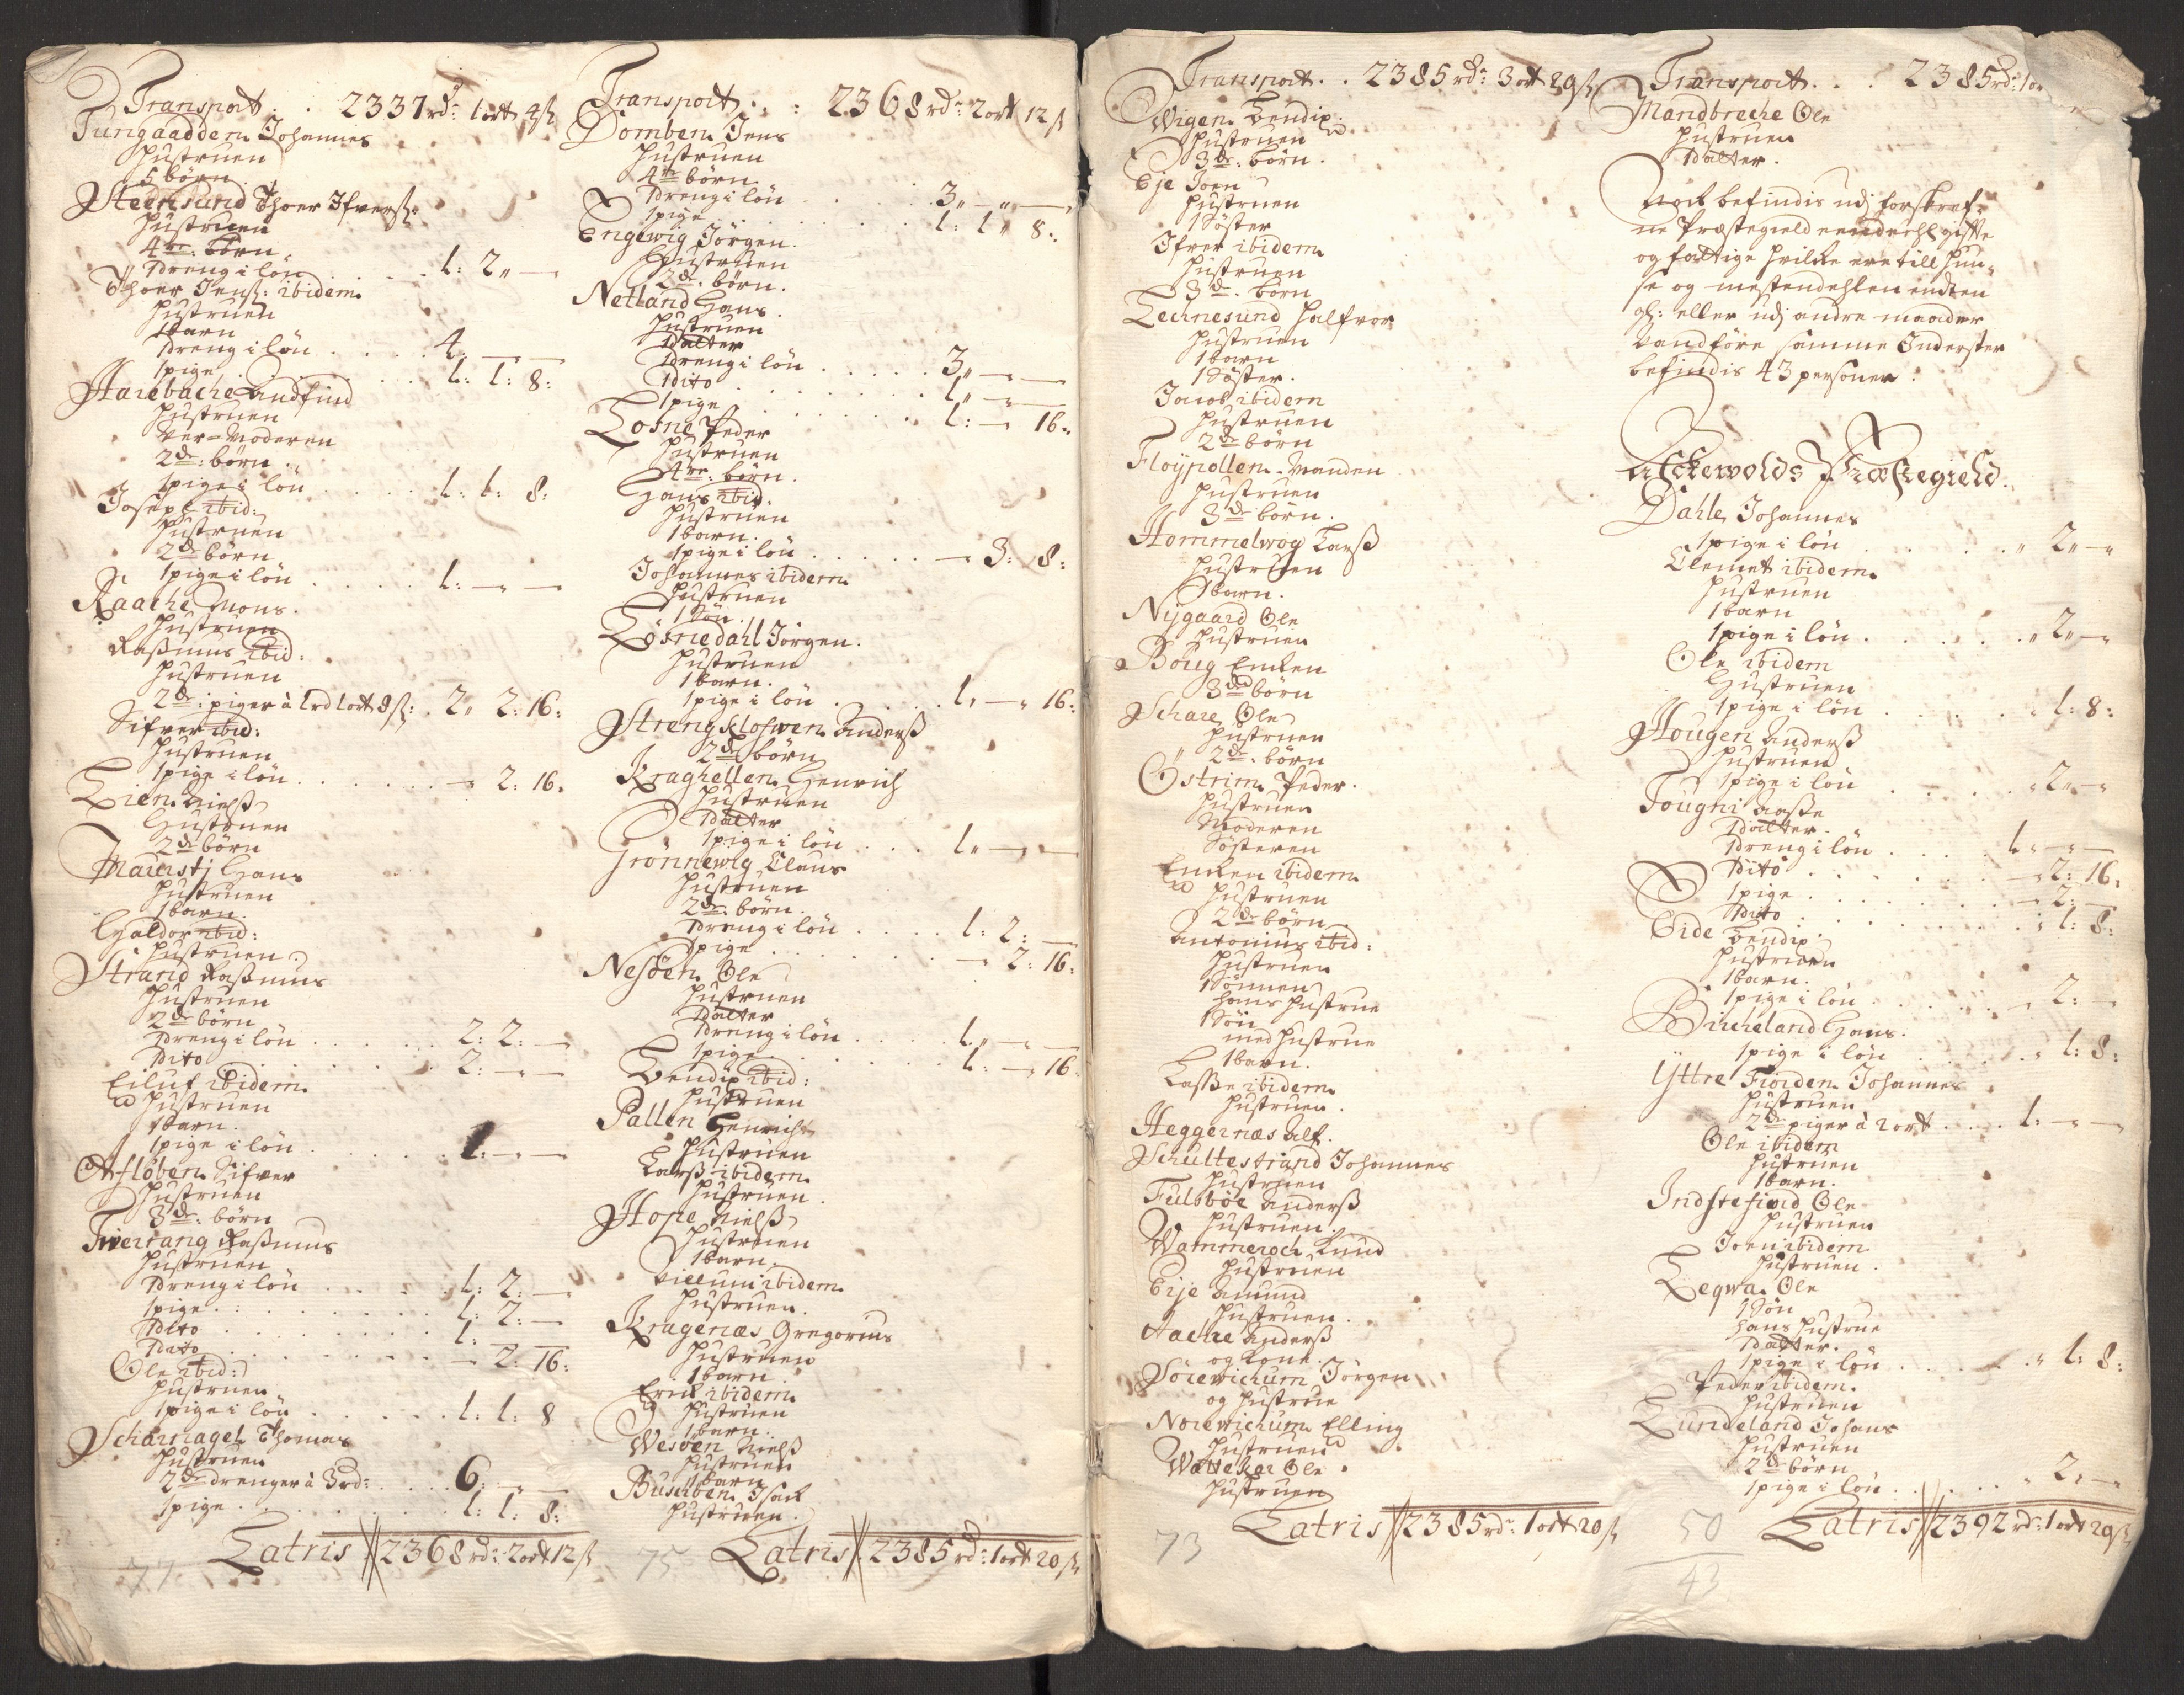 Transport . . 2337 rdr: 1 ort 4 ß
Tungaadden Johannes
Hustruen
5 börn
Steensund Thoer Ifverß:
Hustruen
4re: börn
1 dreng i lön . . . . 1: 2 " —
Thoer Jenß: ibidem
Hustruen
1 barn
1 dreng i lön . . . . 4 — —
1 pige . . . . 1: 1: 8:
Harebache Andfind
Hustruen
Ver-Moderen
2de: börn
1 pige i lön . . . . 1: 1: 8:
Joseph ibid:
Hustruen
2de börn
1 pige i lön . . . . 1: — " —
Raache Mons.
Hustruen
Raßmus ibid:
Hustruen
2de: piger à 1 rd 1 ort 8 ß: . 2 " 2: 16:
Sifver ibid:
Hustruen
1 pige i lön . . . . — 2: 16:
Lien Nielß
Hustruen
2de börn
Maurstj Hans
Hustruen
1 barn
Haldor ibid:
Hustruen
Strand Raßmus
Hustruen
2de börn
1 dreng i lön . . . . 2: 2: —
1 Dito . . . . 2: — —
Eiluf ibidem
Hustruen
1 barn.
1 pige i lön . . . . 1: — " —
Sifver
Hustruen
3de: börn
Tverrang Raßmus
Hustruen
1 dreng i lön . . . . 1: 2: —
1 pige . . . . 1: 2: —
1 Dito . . . . 1: —
1 Dito . . . . — 2: 16:
Ole ibid:
Hustruen
1 pige i lön . . . . 1: 1: 8
Scharnagel Thomas
Hustruen
2de drenger à 3 rd: . . . 6: — " —
1 pige . . . . 1: 1: 8:
Latris 2368 rdr: 2 ort 12 ß
77
Transport . . : 2368 rdr: 2 ort 12 ß
Domben Jens
Hustruen
4re börn
1 dreng i lön . . . . 3 " — " —
1 pige . . . . 1: 1 " 8:
Engewig Jörgen.
Hustruen
2de. börn.
Netland Hans
Hustruen
1 datter
1 dreng i lön . . . . 3 " — —
1 Dito . . . . 1 " — —
1 pige . . . . 1: — 16:
Losne Peder
Hustruen
4re: börn.
Hans ibid:
Hustruen
1 barn.
1 pige i lön . . . . — 3: 8:
Johannes ibidem
Hustruen
1 Sön
Losnedahl Jörgen.
Hustruen
1 barn.
1 pige i lön . . . . 1 " — " 16:
Strengklofwen Anderß
2de börn
Kraghellen Henrich
Hustruen
1 datter
1 pige i lön . . . 1 " — —
Grönnewig Claus
Hustruen
2de: börn.
1 dreng i lön . . . . 1: 2: —
1 pige . . . . — 2: 16:
Nesöen Ole
Hustruen
1 datter
1 dreng i lön . . . . 1 " — —
1 pige . . . . 1: — 16:
Bendix ibid:
Hustruen
Pallen Henrich
Hustruen
Larß ibidem
Hustruen
Hope Nielß
Hustruen
1 barn.
Villum ibidem
Hustruen.
Kragenæs Gregorius
Hustruen
1 barn.
Erik ibidem
Hustruen
1 barn.
Wesöen Nielß
Hustruen
1 barn
Busöen Isach
Hustruen.
75 Latris 2385 rdr: 1 ort 20 ß
Transport . . 2385 rdr: 3 ort 29 ß
Wigen Bendix.
Hustruen
3de: börn.
Eje Joen
Hustruen
1 Söster
Ifver ibidem
Hustruen
3de. börn
Lechnesund Halfvor
Hustruen
1 barn
1 Söster.
Jacob ibidem
Hustruen
2de börn
Floÿpollen Manden
Hustruen
3de börn.
Hommelwog Larß
Hustruen
1 barn.
Nÿgaard Ole
Hustruen
Boug Enken
3de börn
Schare Ole
Hustruen
2de. börn
Östrim Peder.
Hustruen
Moderen
Sösteren
Enken ibidem
Hustruen
2de börn
Antonius ibid:
Hustruen
1 Sönnen
hans Hustrue
1 Sön
med Hustrue
1 barn.
Lasse ibidem
Hustruen.
Heggernæs Alf.
Schultestrand Johannes
Hustruen
Fulsböe Anderß
Hustruen.
Wammeroch Knud
Hustruen
Eije Amund
Hustruen.
Aache Anderß
og Kone.
Sörewichum Jörgen
og Hustrue
Norewichum Elling
Hustruen
Wattekar Ole
Hustruen
73 Latris 2385 rdr: 1 ort 20 ß
Transport . . . 2385 rdr: 1 or
Mandbreche Ole
Hustruen
1 datter.
Noch befindis udj forskref-
ne Præstegield eendehl gifte
og fattige hvilke ere till Huu-
se og mestendehlen endten
gl: eller udj andre maader
Vanföre samme Inderster
befindis 43 personer.
Asckewolds Præstegield.
Dahle Johannes
1 pige i lön . . . . " 2 " — "
Clemet ibidem
Hustruen
1 barn
1 pige i lön . . . . " 2 " — "
Ole ibidem
Hustruen
1 pige i lön . . . . " 1: 8:
Hougen Anderß
Hustruen
1 pige i lön . . . . " 2 " — "
Tougni Aasse
1 datter.
1 dreng i lön . . . . 1 " — " —
1 Dito . . . . — 2: 16:
1 pige . . . . — 2: —
1 Dito . . . . : 1: 8:
Eide Bendix.
Hustruen
1 barn.
1 pige i lön . . . . " 2: —
Bircheland Hans.
1 pige i lön . . . . " 1: 8:
Yttre Fiorden Johannes
Hustruen
2de piger à 2 ort . . . . 1: — " —
Ole ibidem
Hustruen
1 barn.
Indstefiord Ole
Hustruen
Joen ibidem
Hustruen.
Leqwa Ole
1 Sön
hans Hustrue
1 datter.
1 pige i lön . . . . " 1: 8:
Peder ibidem.
Hustruen
Lundeland Johans
Hustruen
2de börn
1 pige i lön . . . . " 2: — "
50 Latris 2392 rdr: 1 ort 20 ß
43